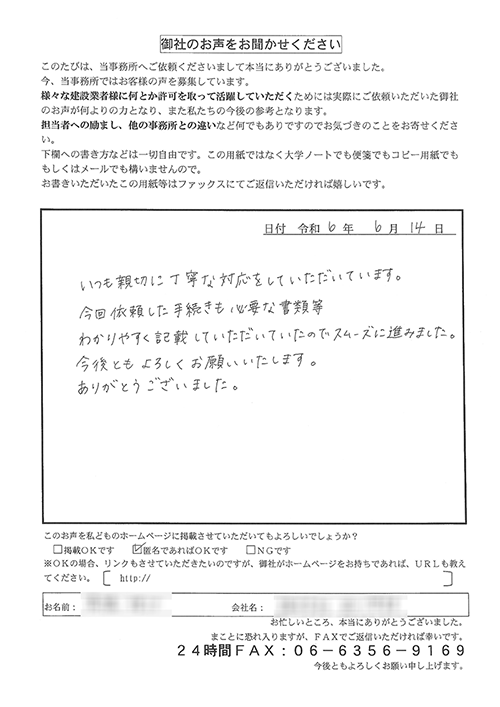 御社のお声をお聞かせください
このたびは、当事務所へご依頼くださいまして本当にありがとうございました。
今、当事務所ではお客様の声を募集しています。
様々な建設業者様に何とか許可を取って活躍していただくためには実際にご依頼いただいた御社
のお声が何よりの力となり、また私たちの今後の参考となります。
担当者への励まし、他の事務所との違いなど何でもありですのでお気づきのことをお寄せくださ
い。
下欄への書き方などは一切自由です。この用紙ではなく大学ノートでも便箋でもコピー用紙でも
もしくはメールでも構いませんので。
お書きいただいたこの用紙等はファックスにてご返信いただければ嬉しいです。
日付 令和 6 年 6 月 14 日
いつも親切に丁寧な対応をしていただいています。
今回依頼した手続きも必要な書類等
わかりやすく記載していただいていたのでスムーズに進みました。
今後ともよろしくお願いいたします。
ありがとうございました。
このお声を私どものホームページに掲載させていただいてもよろしいでしょうか?
□掲載OKです ☑匿名であればOKです □NGです
※OKの場合、リンクもさせていただきたいのですが、御社がホームページをお持ちであれば、URLも教え
てください。 [ http:// ]
お名前: 会社名:
お忙しいところ、本当にありがとうございました。
まことに恐れ入りますが、FAXでご返信いただければ幸いです。
24時間FAX:06-6356-9169
今後ともよろしくお願い申し上げます。